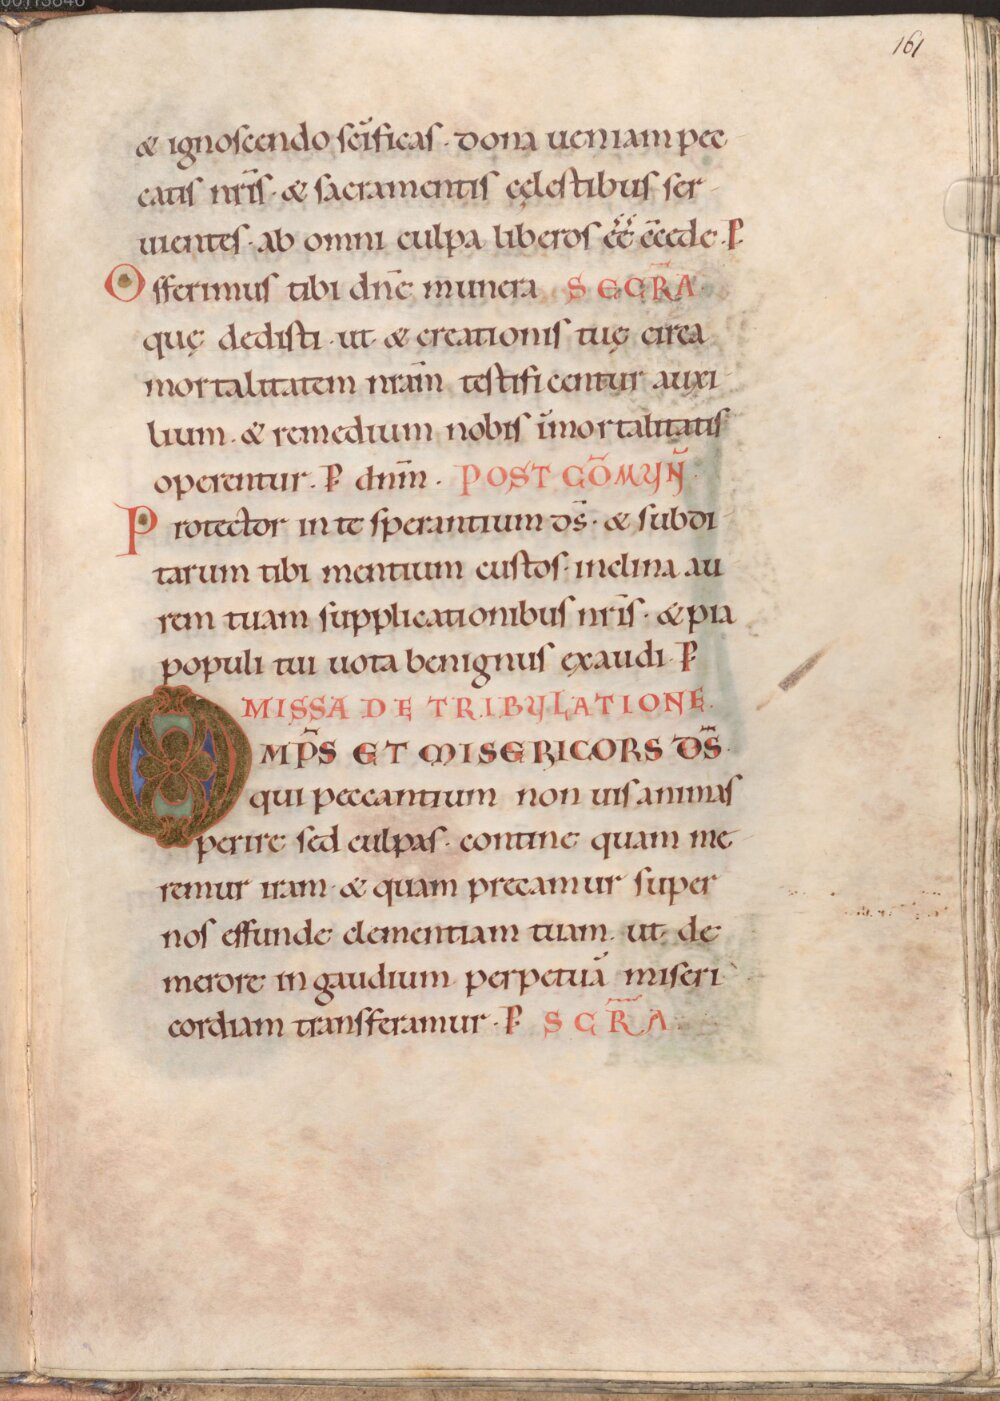 161
& ignoscendo sc̄ificas · Dona ueniam pec
catis nr̄is · & sacramentis cęlestibus ser
uientes · ab omni culpa liberos ēē c̄cede · P
Offerimus tibi dn̄e munera SECR̄A ·
quę dedisti · ut · & creationis tuę circa
mortalitatem nr̄am testificentur auxi
lium · & remedium nobis īmortalitatis
operentur · P dn̄m · POST CŌMUN̄ ·
Protector in te sperantium Ds̄ · & subdi
tarum tibi mentium custos · inclina au
rem tuam supplicationibus nr̄is · & pia
populi tui uota benignus exaudi · P
MISSA DE TRIBULATIONE ·
OMP̄S ET MISERICORS DS̄ ·
qui peccantium non uis animas
perire sed culpas · contine quam me
remur iram · & quam precamur super
nos effunde clementiam tuam · ut · de
merore in gaudium perpetuā miseri
cordiam transferamur · P SCR̄A ·